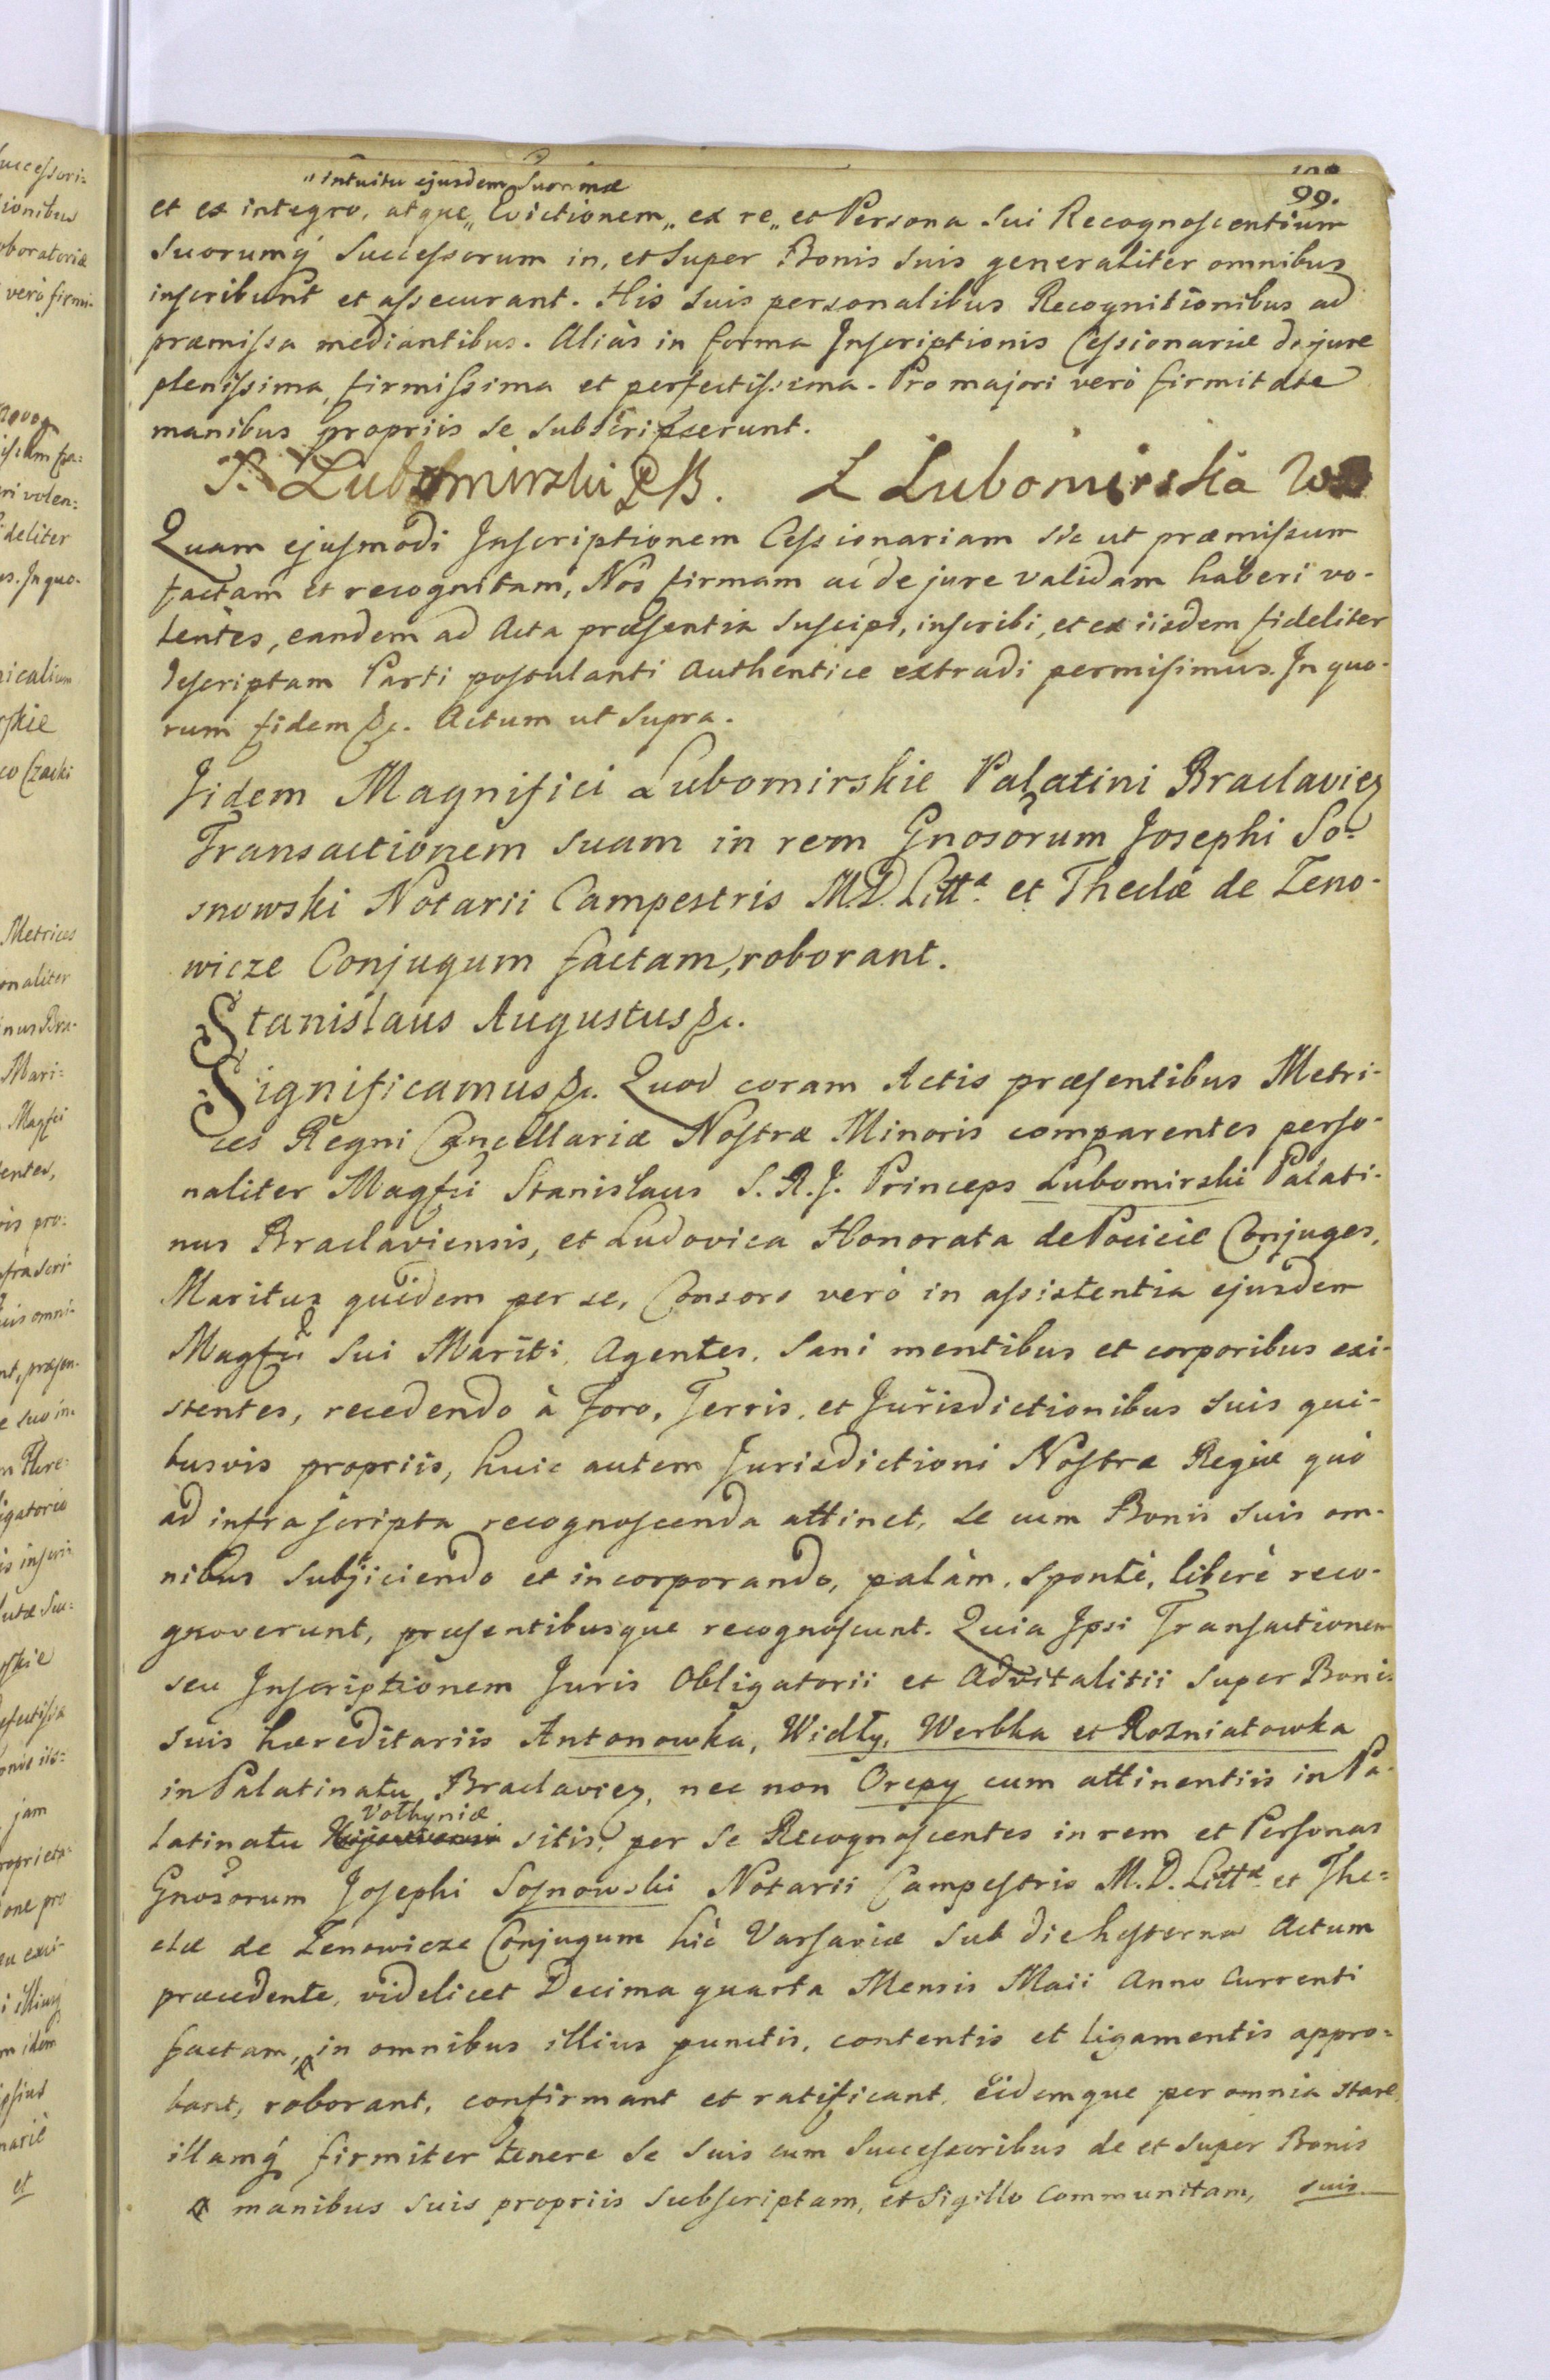 99.
"intuitu ejusdem Summæ
et ex integro, atque „ Evictionem „ ex re „ et Persona sui Recognoscentium
suorumq́ Successorum in, et super Bonis suis generaliter omnibus
inscribunt et assecurant. His suis personalibus Recognitionibus ad
præmissa mediantibus. Aliàs in forma Inscriptionis Cessionariæ de jure
plenissima, firmissima et perfectissima. Pro majori verò firmitate
manibus propriis se subscripserunt.
S. Lubomirski P.B. L Lubomirska
Quam ejusmodi Inscriptionem Cessionariam sic ut præmissum
factam et recognitam, Nos firmam ac de jure validam haberi vo-
lentes, eandem ad Acta præsentia suscipi, inscribi, et ex iisdem fideliter
descriptam Parti postulanti Authentice extradi permisimus. In quo-
rum fidem &c. Actum ut supra.
Iidem Magnifici Lubomirskie Palatini Braclavien
Transactionem suam in rem Gnosorum Josephi So-
snowski Notarii Campestris M.D. Litt.æ et Theclæ de Zeno-
wicze Conjugum factam, roborant.
Stanislaus Augustus &c.
Significamus &c. Quod coram Actis præsentibus Metri-
ces Regni Cancellariæ Nostræ Minoris comparentes perso-
naliter Magfci Stanislaus S. R. J. Princeps Lubomirski Palati-
nus Braclaviensis, et Ludovica Honorata de Pocieie Conjuges,
Maritus quidem per se, Consors verò in assistentia ejusdem
Magfci sui Mariti, Agentes, sani mentibus et corporibus exi-
stentes, recedendo à Foro, Terris, et Jurisdictionibus suis qui-
busvis propriis, huic autem Jurisdictioni Nostræ Regiæ quò
ad infrascripta recognoscenda attinet, se cum Bonis suis om-
nibus subjiciendo et incorporando, palàm, sponte, liberè reco-
gnoverunt, præsentibusque recognoscunt. Quia Ipsi Transactionem
seu Inscriptionem Juris Obligatorii et Advitalitii super Bonis
suis hæreditariis Antonowka, Widły, Werbka et Rozniatowka
in Palatinatu Braclavien, nec non Orepy cum attinentiis in Pa-
Volhyniæ
latinatu Kijoviensi sitis, per se Recognoscentes in rem et Personas
Gnosorum Josephi Sosnowski Notarii Campestris M.D. Litt.æ et The-
clæ de Zenowicze Conjugum hìc Varsaviæ sub die hesterna Actum
præcedente, videlicet Decima quarta Mensis Maii Anno Currenti
factam, in omnibus illius punctis, contentis et ligamentis appro-
bant, roborant, confirmant et ratificant, eidemque per omnia stare
illamq́ firmiter tenere se suis cum Successoribus de et super Bonis
manibus suis propriis subscriptam, et Sigillo Communitam, suis